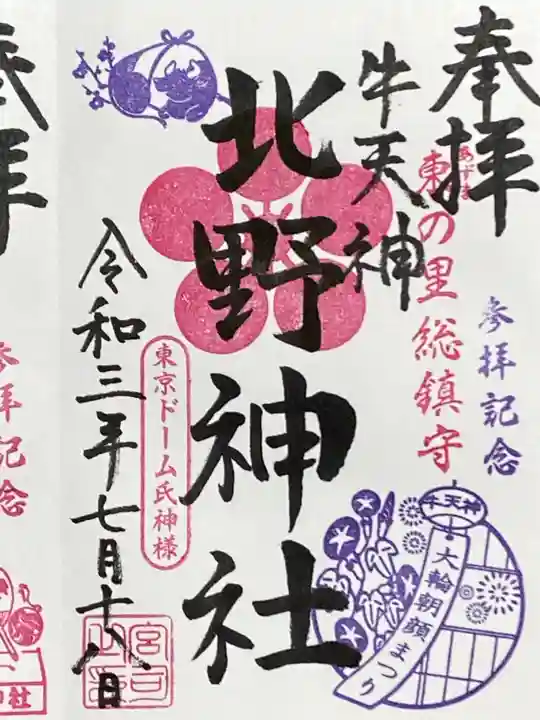 奉拝
参拝記念
東の里総鎮守
あずま
牛天神
北野神社
東京ドーム氏神様
令和三年七月十八日
牛天神
大輪朝顔まつり
宮司
奉拝
参拝記念